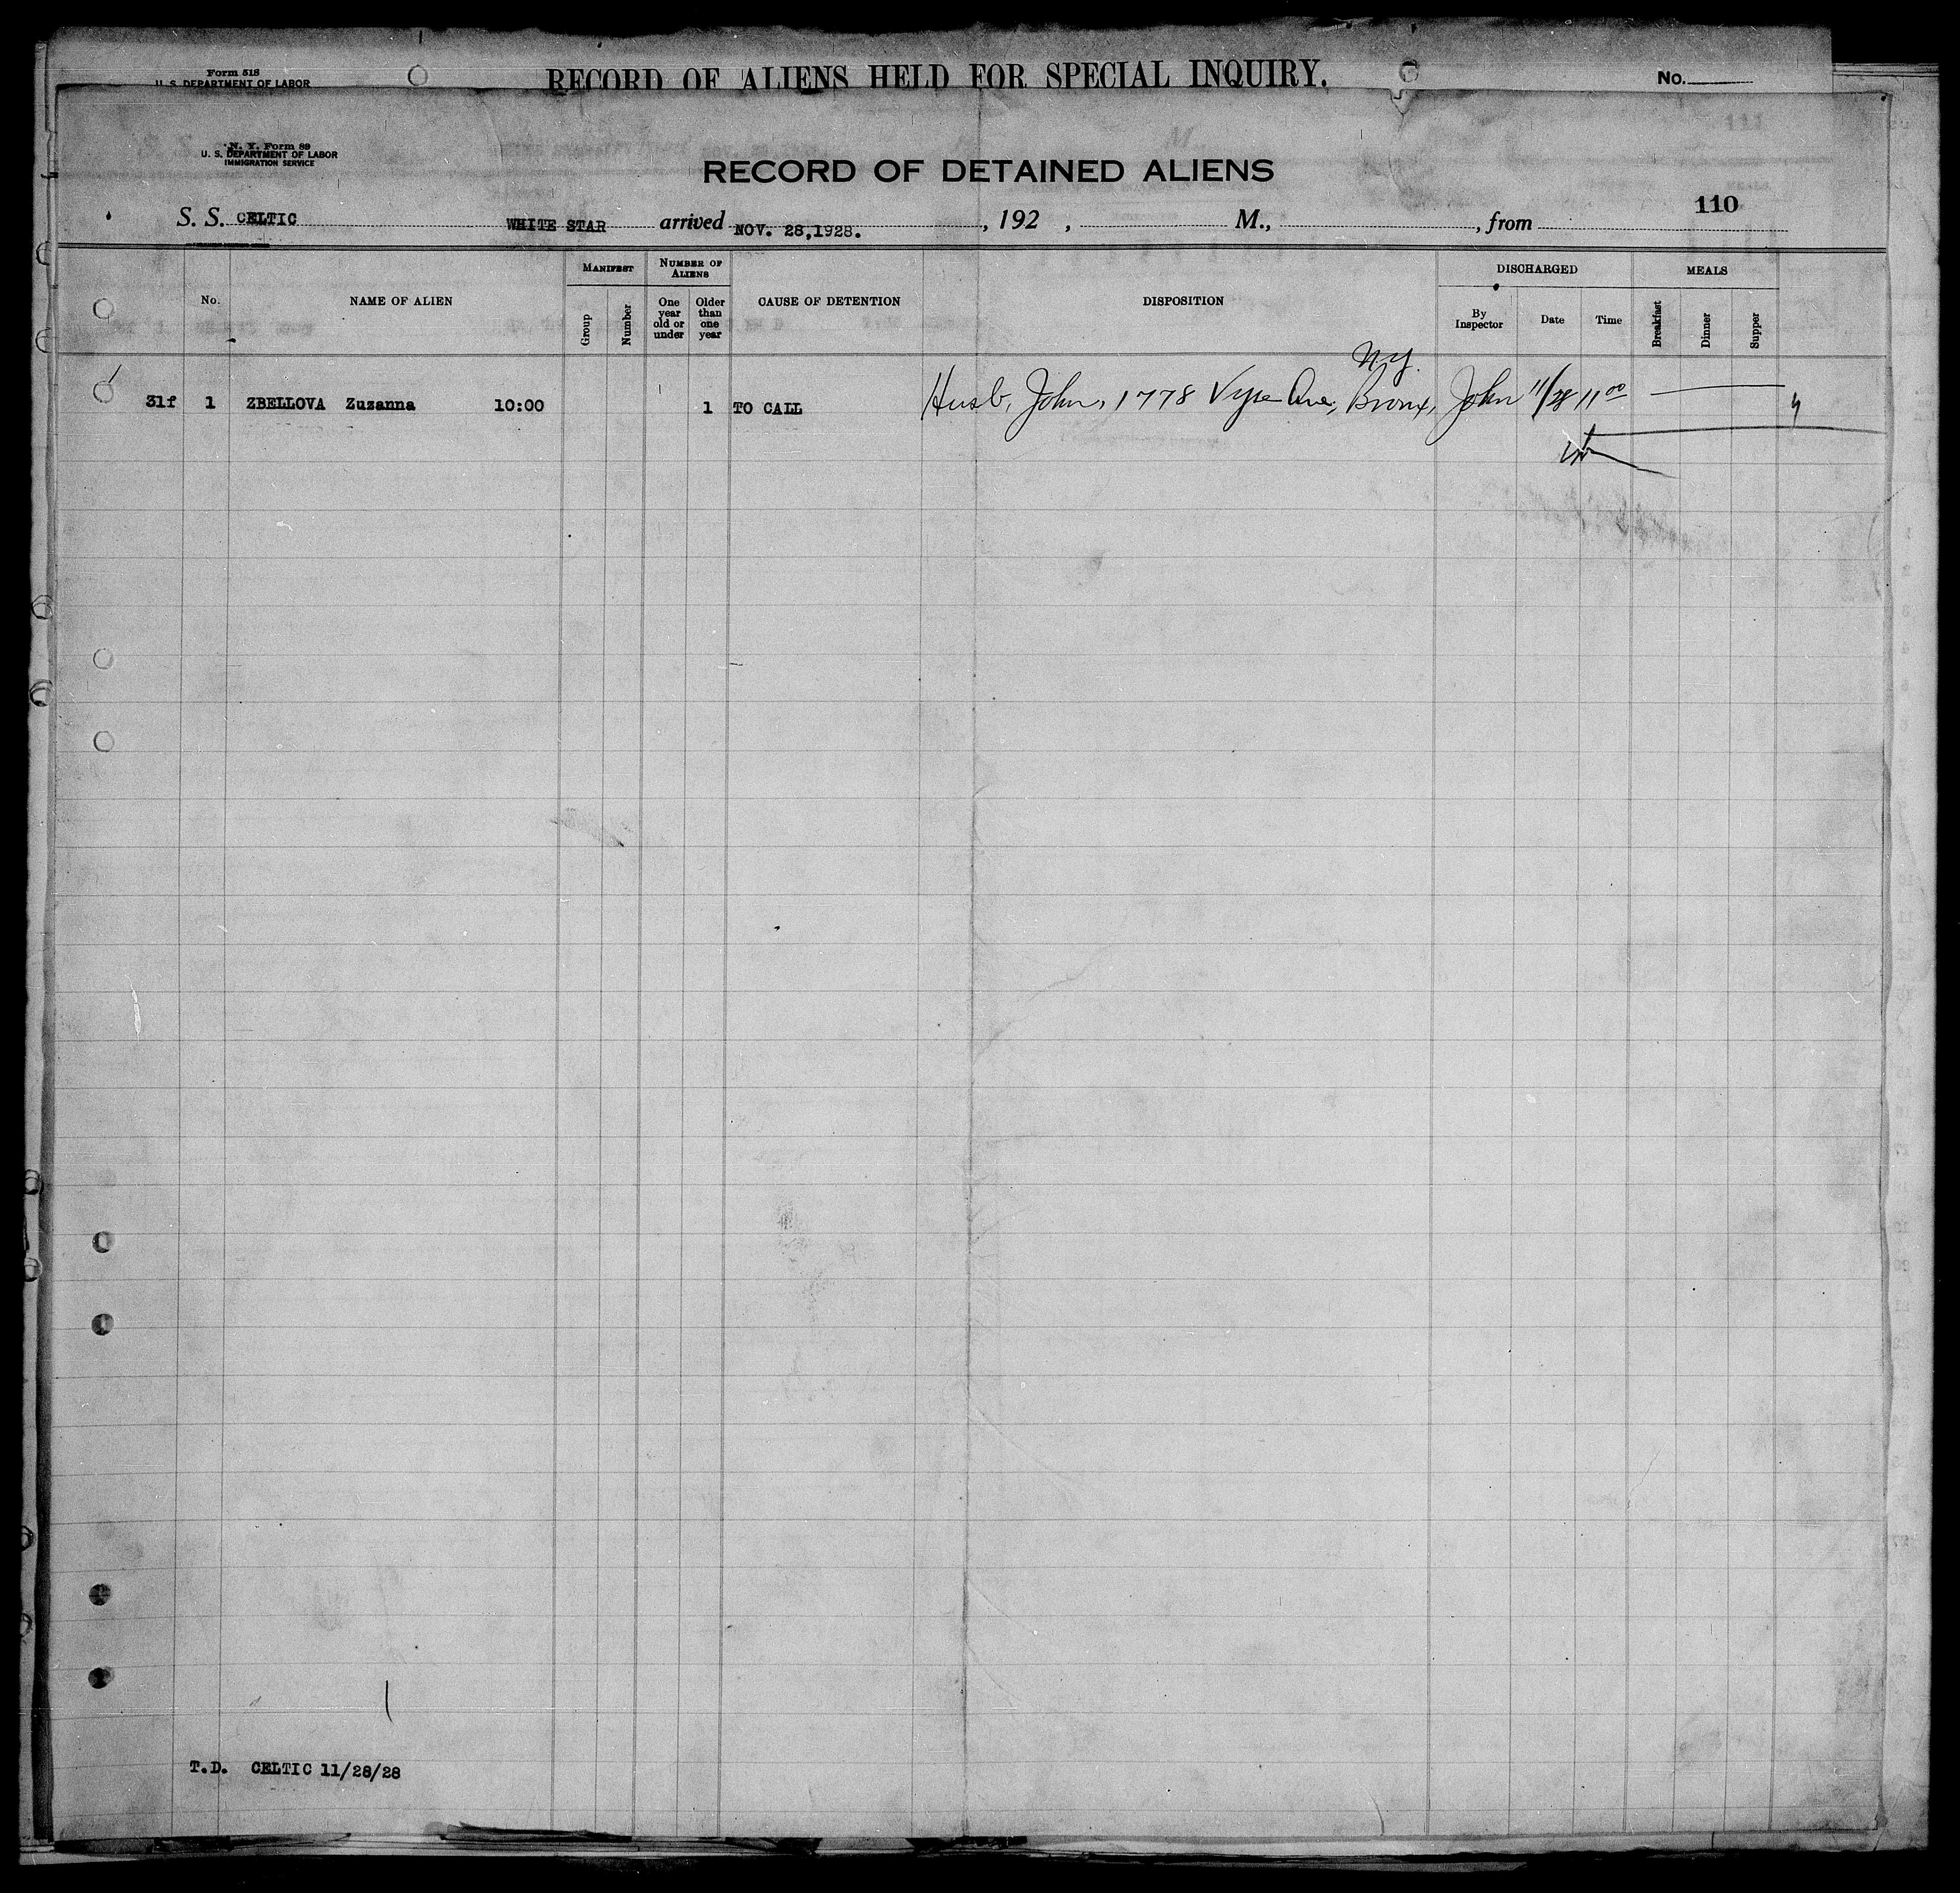 Form 518
U. S. DEPARTMENT OF LABOR
RECORD OF ALIENS HELD FOR SPECIAL INQUIRY.
No.
N. Y. Form 89
U. S. DEPARTMENT OF LABOR
IMMIGRATION SERVICE
RECORD OF DETAINED ALIENS
110
S. S. CELTIC WHITE STAR arrived NOV. 28,1928. , 192 , M., , from
No.
NAME OF ALIEN
MANIFEST
Group
Number
NUMBER OF ALIENS
One year old or under
Older than one year
CAUSE OF DETENTION
DISPOSITION
DISCHARGED
By Inspector
Date
Time
MEALS
Breakfast
Dinner
Supper
N.Y.
31f 1 ZBELLOVA Zuzanna 10:00 1 TO CALL Husb, John, 1778 Vyse Ave., Bronx, John 11/28 11 00
T.D. CELTIC 11/28/28